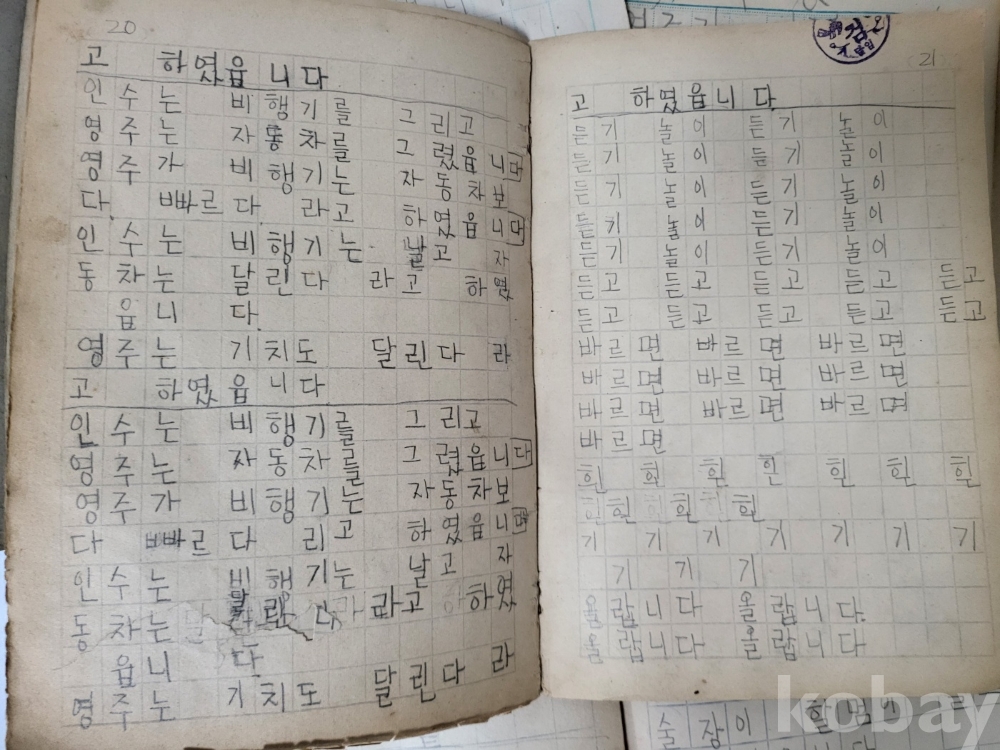 20
고 하였읍니다
인수는 비행기를 그리고
영주는 자동차를 그렸읍니다
영주가 비행기는 자동차보
다. 빠르다. 라고 하였읍니다
인수는 비행기는 날고 자
동차는 달린다 라고 하였
읍니다.
영주는 기치도 달린다 라
고 하였읍니다
인수는 비행기를 그리고
영주는 자동차를 그렸읍니다
영주가 비행기는 자동차보
다 빠르다 리고 하였읍니다
인수는 비행기는 날고 자
동차는 라고 하였
읍니다.
영주는 기치도 달린다 라
21
고 하였읍니다.
듣기 놀이 듣기 놀이
듣기 놀이 듣기 놀이
듣기 놀이 듣기 놀이
듣키 놀이 듣기 놀이
듣기 놀이 듣기 놀이
듣고 듣고 듣고 듣고 듣고
듣고 듣고 듣고 듣고 듣고
바르면 바르면 바르면
바르면 바르면 바르면
바르면 바르면 바르면
바르면
흰 흰 흰 흰 흰 흰 흰
흰 흰 흰 흰
기 기 기 기 기 기 기
기 기 기
올랍니다 올랍니다.
올랍니다 올랍니다
술장이 할넘인
kobay